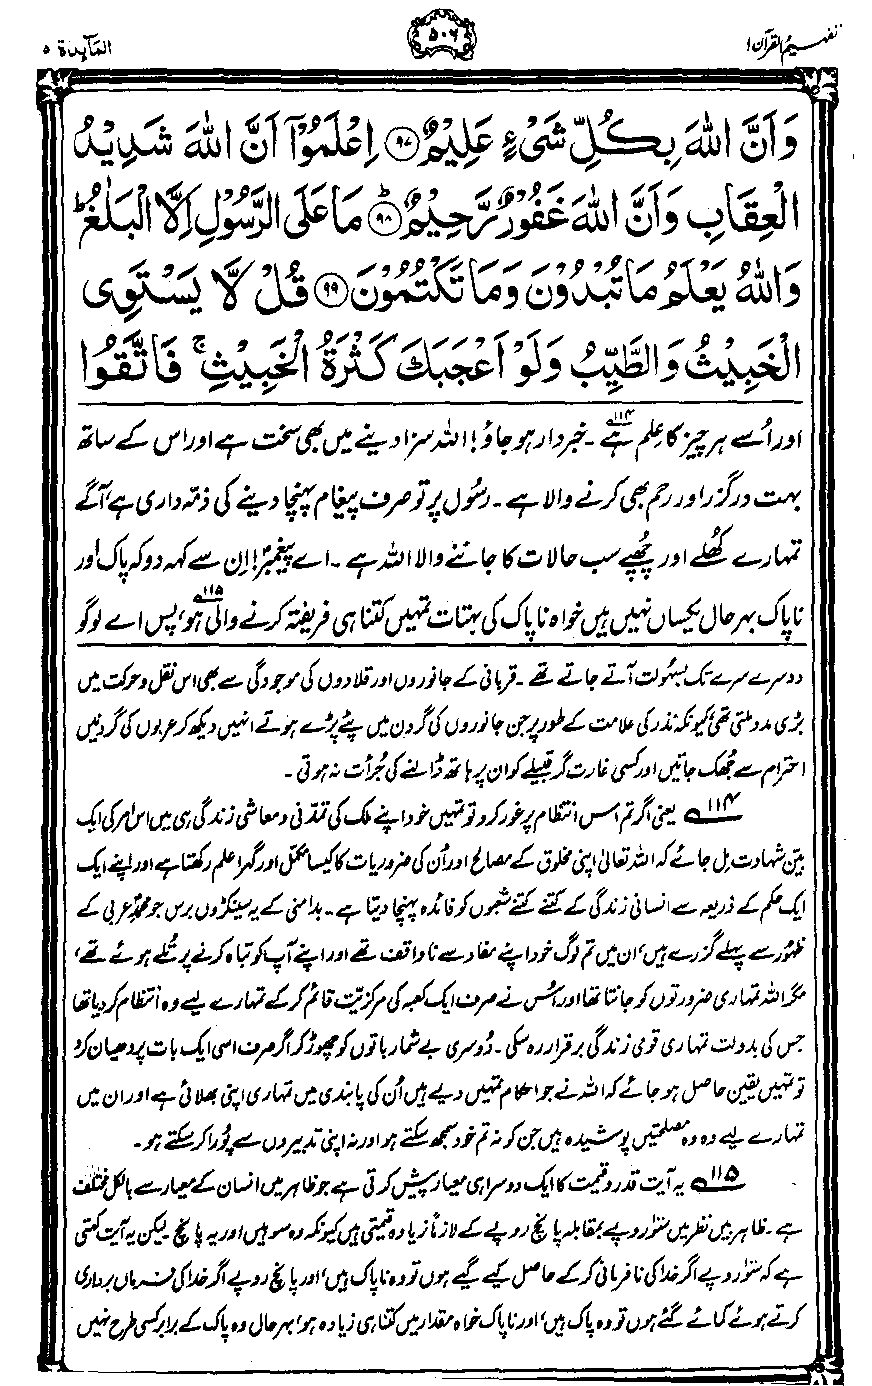 تفہیم القرآن ۱
۵۰۶
المآیدۃ ۵
وَاَنَّ اللّٰهَ بِكُلِّ شَیْءٍ عَلِیْمٌ ﴿۹۷﴾ اِعْلَمُوْۤا اَنَّ اللّٰهَ شَدِیْدُ
الْعِقَابِ وَاَنَّ اللّٰهَ غَفُوْرٌ رَّحِیْمٌ ﴿۹۸﴾ؕ مَا عَلَى الرَّسُوْلِ اِلَّا الْبَلٰغُ ؕ
وَاللّٰهُ یَعْلَمُ مَا تُبْدُوْنَ وَمَا تَكْتُمُوْنَ ﴿۹۹﴾ قُلْ لَّا یَسْتَوِی
الْخَبِیْثُ وَالطَّیِّبُ وَلَوْ اَعْجَبَكَ كَثْرَةُ الْخَبِیْثِ ۚ فَاتَّقُوا
اور اُسے ہر چیز کا علم ہے۱۱۴۔ خبردار ہو جاؤ! اللہ سزا دینے میں بھی سخت ہے اور اس کے ساتھ
بہت درگزر اور رحم بھی کرنے والا ہے۔ رسول پر تو صرف پیغام پہنچا دینے کی ذمہ داری ہے، آگے
تمہارے کھُلے اور چھُپے سب حالات کا جاننے والا اللہ ہے۔ اے پیغمبرؐ! اِن سے کہہ دو کہ پاک اور
ناپاک بہرحال یکساں نہیں ہیں خواہ ناپاک کی بہتات تمہیں کتنا ہی فریفتہ کرنے والی ہو۱۱۵، پس اے لوگو
دوسرے سرے تک بسہُولت آتے جاتے تھے۔ قربانی کے جانوروں اور قلادوں کی موجودگی سے بھی اس نقل و حرکت میں
بڑی مدد ملتی تھی، کیونکہ نذر کی علامت کے طور پر جن جانوروں کی گردن میں پٹے پڑے ہوتے انہیں دیکھ کر عربوں کی گردنیں
احترام سے جھُک جاتیں اور کسی غارت گر قبیلے کو ان پر ہاتھ ڈالنے کی جُرأت نہ ہوتی۔
۱۱۴ یعنی اگر تم اس انتظام پر غور کرو تو تمہیں خود اپنے ملک کی تمدنی و معاشی زندگی ہی میں اس امر کی ایک
بیّن شہادت مل جائے کہ اللہ تعالیٰ اپنی مخلوق کے مصالح اور اُن کی ضروریات کا کیسا مکمل اور گہرا علم رکھتا ہے اور اپنے ایک
ایک حکم کے ذریعہ سے انسانی زندگی کے کتنے کتنے شعبوں کو فائدہ پہنچا دیتا ہے۔ بدامنی کے یہ سینکڑوں برس جو محمدؐ عربی کے
ظہُور سے پہلے گزرے ہیں، ان میں تم لوگ خود اپنے مفاد سے ناواقف تھے اور اپنے آپ کو تباہ کرنے پر تُلے ہوئے تھے،
مگر اللہ تمہاری ضرورتوں کو جانتا تھا اور اُس نے صرف ایک کعبہ کی مرکزیّت قائم کر کے تمہارے لیے وہ انتظام کر دیا تھا
جس کی بدولت تمہاری قومی زندگی برقرار رہ سکی۔ دُوسری بے شمار باتوں کو چھوڑ کر اگر صرف اسی ایک بات پر دھیان کرو
تو تمہیں یقین حاصل ہو جائے کہ اللہ نے جو احکام تمہیں دیے ہیں اُن کی پابندی میں تمہاری اپنی بھلائی ہے اور ان میں
تمہارے لیے وہ وہ مصلحتیں پوشیدہ ہیں جن کو نہ تم خود سمجھ سکتے ہو اور نہ اپنی تدبیروں سے پُورا کر سکتے ہو۔
۱۱۵ یہ آیت قدر و قیمت کا ایک دوسرا ہی معیار پیش کرتی ہے جو ظاہر میں انسان کے معیار سے بالکل مختلف
ہے۔ ظاہر بیں نظر میں سَو روپے بمقابلہ پانچ روپے کے لازماً زیادہ قیمتی ہیں کیونکہ وہ سو ہیں اور یہ پانچ۔ لیکن یہ آیت کہتی
ہے کہ سَو روپے اگر خدا کی نافرمانی کر کے حاصل کیے گیے ہوں تو وہ ناپاک ہیں، اور پانچ روپے اگر خدا کی فرماں برداری
کرتے ہوئے کمائے گئے ہوں تو وہ پاک ہیں، اور ناپاک خواہ مقدار میں کتنا ہی زیادہ ہو، بہرحال وہ پاک کے برابر کسی طرح نہیں